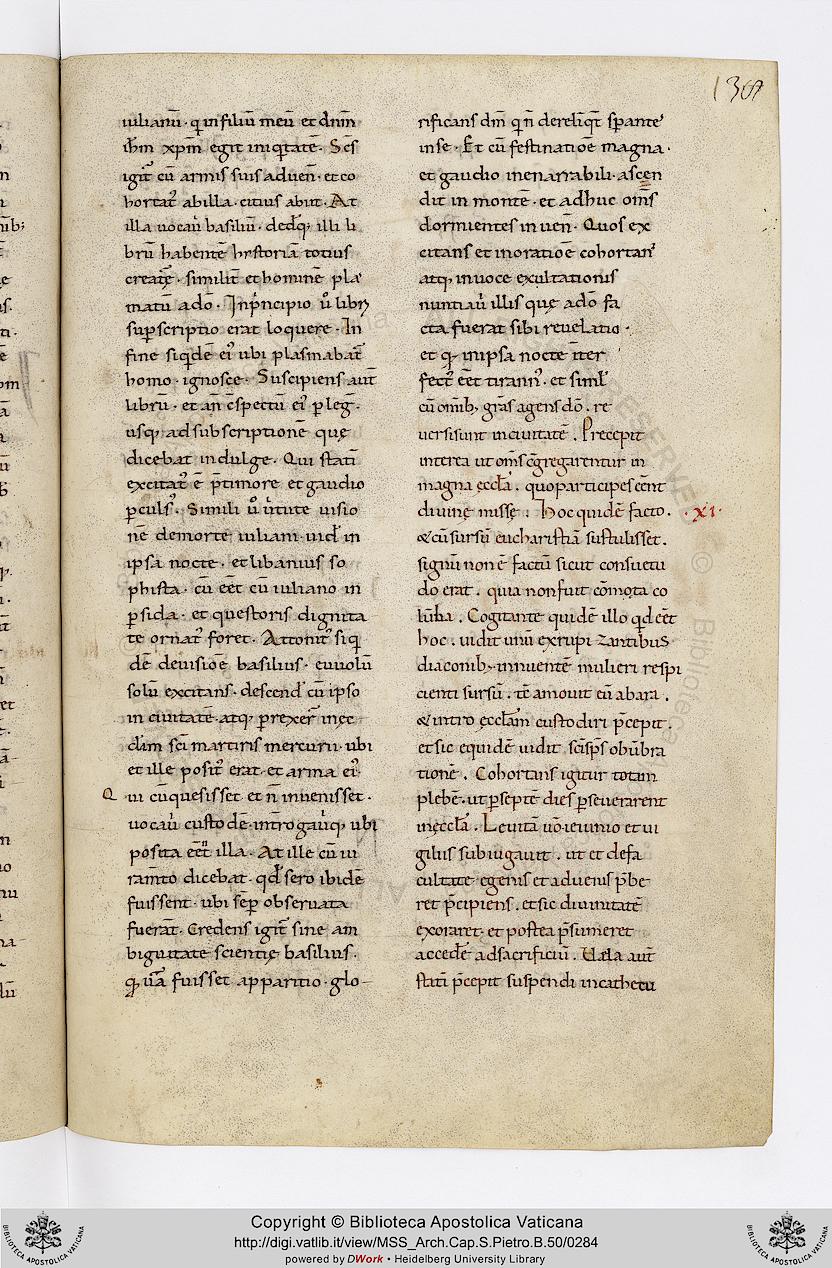 138
iulianū· q̄ in filiū meū et dnm̄
ih̄m xpm̄ egit iniq̄tatē· Sc̄s
igit̄ cū armis suis advēn̄· et co
hortat᷑ ab illa· citius abiit· At
illa vocav̄ basiliū· dedq̨ illi li
brū habentē hystoriā totius
creatę̄· similit̄ et hominē pla
matū a dō· In p̄ncipio v̊ libri
sup̱scriptio erat loquere· In
fine siq̄dē ei᷒ ubi plasmabat̄
homo· ignosce· Suscipiens aut̄
librū· et an̄ c̄spectū ei᷒ p̱leḡ·
usq̨ ad subscriptionē que
dicebat indulge· Qui stati
excitat᷒ ē p̄ timore et gaudio
p̱culs᷒· Simili v̊ v̄tute visio
nē de morte iuliani· vid̄ in
ipsa nocte· et libanius so
phista· cū eēt cū iuliano in
p̱sida· et questoris dignita
te ornat᷒ foret· Attonit᷒ siq̄
dē de visiōe basilius· euuolū
solū excitans· descend̄ cū ipso
in civitatē· atq̨ p̱rexer̄ in ęc
clām sc̄i martiris mercurii· ubi
et ille posit᷒ erat· et arma ei᷒·
Qui cūquesisset et n̄ invenisset·
vocav̄ custodē· int̄rogav̄q̨ ubi
posita eēt illa· At ille cū iu
ram̄to dicebat· qd̄ sero ibidē
fuissent· ubi sēp̱ observata
fuerāt· Credens igit̄ sine am
biguitate scientię basilius·
q̨ v̄a fuisset apparitio· glo-
rificans dm̄ q̄ n̄ dereliq̄t sperante᷒
in se· Et cū festinatioē magna·
et gaudio inenarrabili· ascen
dit in montē· et adhuc om̄s
dormientes invēn̄· Quos ex
citans et in oratioē cohortan᷒
atq̨ in voce exultationis
nuntiav̄ illis quę a dō fa
cta fuerat sibi revelatio·
et q̨ in ipsa nocte īter
fect᷒ eēt tirann᷒· et simł
cū omib᷒ grās agens dō· re
versi sunt in civitatē· Precepit
interea ut om̄s c̄gregarentur in
magna ęccl̄a· quo participes eēnt
divinę missę· Hoc quidē facto· ·XI·
& cū sursū eucharistiā sustulisset·
signū non ē factū sicut consuetu
do erat· quia non fuit cōmota co
lūba· Cogitante quidē illo qd̄ eēt
hoc· vidit unū ex rupi zantibus
diaconib᷒ innuentē mulieri respi
cienti sursū· tē amovit eū ab ara·
& intro ęcclām custodiri p̄cepit·
et sic equidē vidit· sc̄i sp̄s obūbra
tionē· Cohortans igitur totam
plebē· ut p̱ septē dies p̱severarent
in ęccl̄a· Levitā v̊o ieiunio et vi
giliis subiugavit· ut et de fa
cultate egenis et advenis p̄be
ret p̄cipiens· et sic divinitatē
exoraret· et postea p̄sumeret
accedē ad sacrificiū· Uęla aut̄
stati p̄cepit suspendi in cathetu
Copyright © Biblioteca Apostolica Vaticana
http://digi.vatlib.it/view/MSS_Arch.Cap.S.Pietro.B.50/0284
powered by DWork • Heidelberg University Library